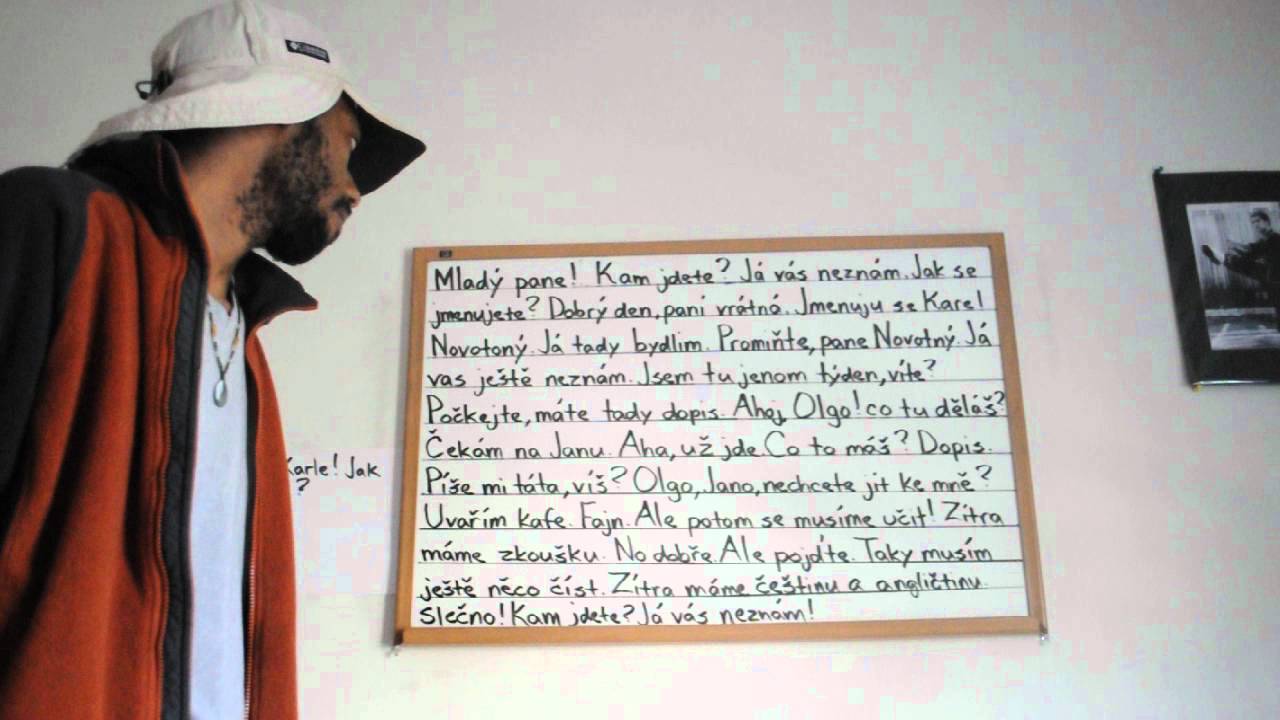 Mladý pane! Kam jdete? Já vás neznám. Jak se
jmenujete? Dobrý den, pani vrátná. Jmenuju se Karel
Novotoný. Já tady bydlim. Promiňte, pane Novotný. Já
vas ještě neznám. Jsem tu jenom týden, víte?
Počkejte, máte tady dopis. Ahoj Olgo! co tu děláš?
Čekám na Janu. Aha, už jde. Co to máš? Dopis.
Píše mi táta, víš? Olgo, Jano, nechcete jít ke mně?
Uvařím kafe. Fajn. Ale potom se musíme učit! Zítra
máme zkoušku. No dobře. Ale pojďte. Taky musím
ještě něco číst. Zítra máme češtinu a angličtinu.
Slečno! Kam jdete? Já vás neznám!
Karle! Jak
?